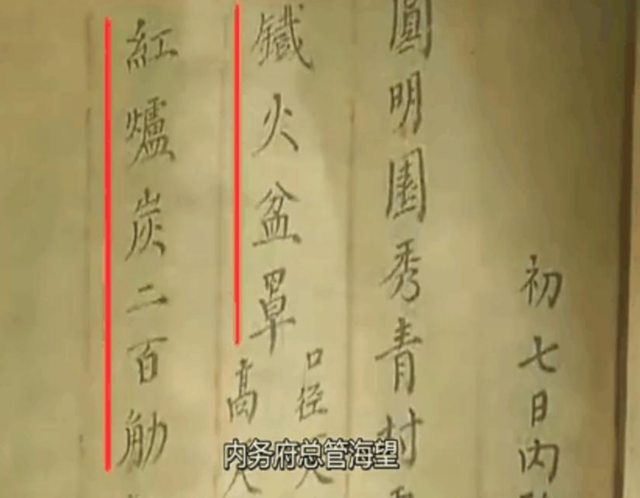 初七日內
圓明園秀青村
鐵火盆罩
口径
高
紅爐炭二百觔
内务府总管海望